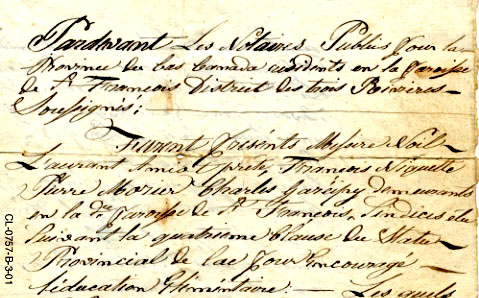 Pardevant Les Notaires Publics pour la
Province du bas Canada residents en la Paroisse
de St. François District des trois Rivieres
Soussignés;
Furent Présents Messire Noël
Laurant Amiot prêtre, François Niquette
Pierre Morier Charles Gariepy demeurants
en la dte. Paroisse de St. François, Sindics elu
Suivant la quatrieme Clause du Statu
Provincial de la pour Encouragé
l'éducation Elimentaire. — Les quels
CL-0757-B-3-01